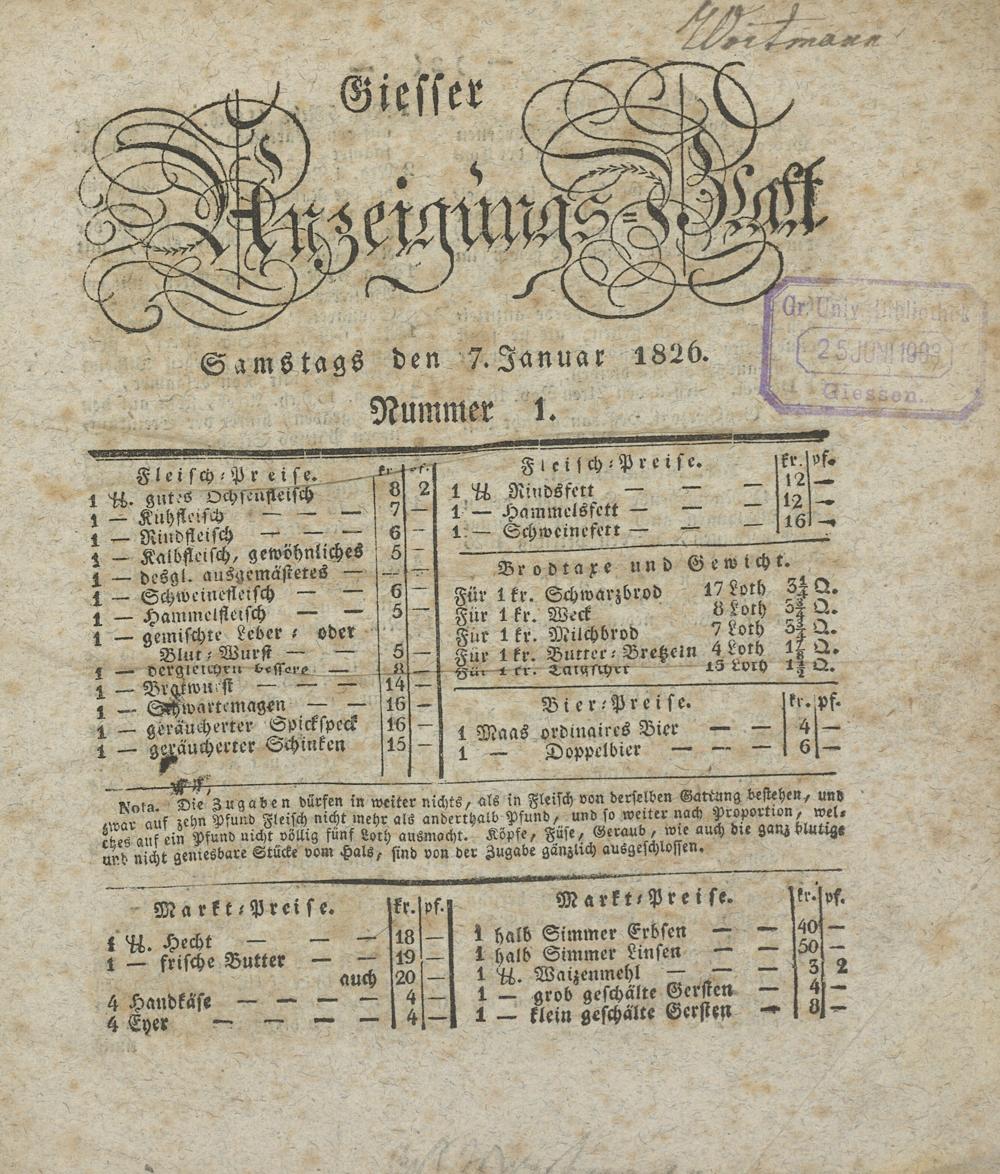 Wortmann
Giesser
Anzeigungs=Blatt
Gr. Univ. Bibliothek
25 JUNI
Giessen.
Samstags den 7. Januar 1826.
Nummer 1.
Fleisch=Preise. kr. pf.
1 ℔. gutes Ochsenfleisch 8 2
1 — Kuhfleisch — — — 7 —
1 — Rindfleisch — — — 6 —
1 — Kalbfleisch, gewöhnliches 5 —
1 — desgl. ausgemästetes — — —
1 — Schweinefleisch — — 6 —
1 — Hammelfleisch — — 5 —
1 — gemischte Leber= oder
Blut=Wurst — — 5 —
1 — dergleichen bessere — 8 —
1 — Bratwurst — — — 14 —
1 — Schwartemagen — — 16 —
1 — geräucherter Spickspeck 16 —
1 — geräucherter Schinken 15 —
Fleisch=Preise. kr. pf.
1 ℔ Rindsfett — — — 12 —
1 — Hammelsfett — — — 12 —
1 — Schweinefett — — — 16 —
Brodtaxe und Gewicht.
Für 1 kr. Schwarzbrod 17 Loth 3¼ Q.
Für 1 kr. Weck 8 Loth Q.
Für 1 kr. Milchbrod 7 Loth Q.
Für 1 kr. Butter=Bretzeln 4 Loth Q.
Für 1 kr. 15 Loth 1½ Q.
Bier=Preise. kr. pf.
1 Maas ordinaires Bier — — 4 —
1 — Doppelbier — — — 6 —
Nota. Die Zugaben dürfen in weiter nichts, als in Fleisch von derselben Gattung bestehen, und
zwar auf zehn Pfund Fleisch nicht mehr als anderthalb Pfund, und so weiter nach Proportion, wel=
ches auf ein Pfund nicht völlig fünf Loth ausmacht. Köpfe, Füse, Geraub, wie auch die ganz blutige
und nicht geniesbare Stücke vom Hals, sind von der Zugabe gänzlich ausgeschlossen.
Markt=Preise. kr. pf.
1 ℔. Hecht — — — 18 —
1 — frische Butter — — 19 —
auch 20 —
4 Handkäse — — — — 4 —
4 Eyer — — — — 4 —
Markt=Preise. kr. pf.
1 halb Simmer Erbsen — — 40 —
1 halb Simmer Linsen — — 50 —
1 ℔. Waizenmehl — — — 3 2
1 — grob geschälte Gersten — 4 —
1 — klein geschälte Gersten — 8 —